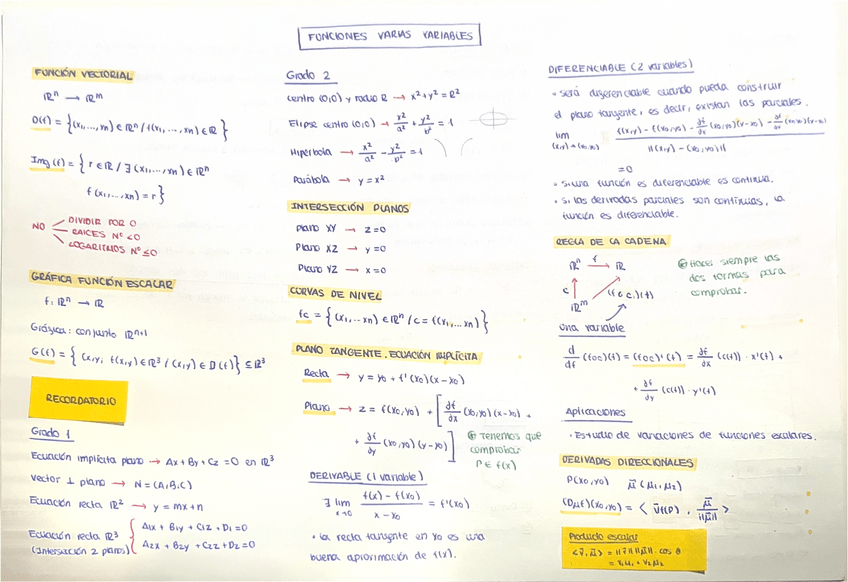 FUNCIONES VARIAS VARIABLES
FUNCIÓN VECTORIAL
ℝⁿ → ℝᵐ
D(f) = {(x₁,...,xn) ∈ ℝⁿ / f(x₁,...,xn) ∈ ℝ}
Img(f) = { r ∈ ℝ / ∃(x₁,...,xn) ∈ ℝⁿ
f(x₁,...,xn) = r}
NO
DIVIDIR POR 0
RAICES Nº <0
LOGARITMOS Nº ≤0
GRÁFICA FUNCIÓN ESCALAR
f: ℝⁿ → ℝ
Gráfica: conjunto ℝⁿ⁺¹
G(f) = { (x,y, f(x,y) ∈ ℝ³ / (x,y) ∈ D(f)} ⊆ ℝ³
RECORDATORIO
Grado 1
Ecuación implícita plano → Ax + By + Cz = 0 en ℝ³
Vector ⊥ plano → N = (A,B,C)
Ecuación recta ℝ² → y = mx+n
Ecuación recta ℝ³
(Intersección 2 planos)
{ A₁x + B₁y + C₁z + D₁ = 0
A₂x + B₂y + C₂z + D₂ = 0
Grado 2
Centro (0,0) y radio R → x² + y² = R²
Elipse centro (0,0) → x²/a² + y²/b² = 1
Hipérbola → x²/a² - y²/b² = 1
Parábola → y = x²
INTERSECCIÓN PLANOS
Plano XY → z=0
Plano XZ → y=0
Plano YZ → x=0
CURVAS DE NIVEL
fc = {(x₁,...xn) ∈ ℝⁿ / c = f(x₁,...xn)}
PLANO TANGENTE. ECUACIÓN IMPLÍCITA
Recta → y = y₀ + f'(x₀)(x-x₀)
Plano → z = f(x₀,y₀) + [ ∂f/∂x (x₀,y₀)(x-x₀) +
+ ∂f/∂y (x₀,y₀)(y-y₀) ]
Tenemos que
comprobar
P ∈ f(x)
DERIVABLE (1 variable)
∃ lim x→0 f(x) - f(x₀) / x - x₀ = f'(x₀)
• La recta tangente en x₀ es una
buena aproximación de f(x).
DIFERENCIABLE (2 variables)
• Será diferenciable cuando pueda construir
el plano tangente, es decir, existan las parciales.
lim (x,y)→(x₀,y₀) f(x,y) - f(x₀,y₀) - ∂f/∂x (x₀,y₀)(x-x₀) - ∂f/∂y (x₀,y₀)(y-y₀) / ||(x,y) - (x₀,y₀)||
=0
• Si una función es diferenciable es continua.
• Si las derivadas parciales son continuas, la
función es diferenciable.
REGLA DE LA CADENA
ℝⁿ f → ℝ
c ↑ (f∘c)(t)
ℝᵐ
Hacer siempre las
dos formas para
comprobar.
Una variable
d/dt (f∘c)(t) = (f∘c)'(t) = ∂f/∂x (c(t)) · x'(t) +
+ ∂f/∂y (c(t)) · y'(t)
Aplicaciones
• Estudio de variaciones de funciones escalares.
DERIVADAS DIRECCIONALES
P(x₀,y₀) u⃗ (μ₁,μ₂)
(Dμf)(x₀,y₀) = < ∇f(P), μ⃗/||μ⃗|| >
Producto escalar
<v⃗,μ⃗> = ||v⃗|| ||μ⃗|| · cos θ
= v₁μ₁ + v₂μ₂